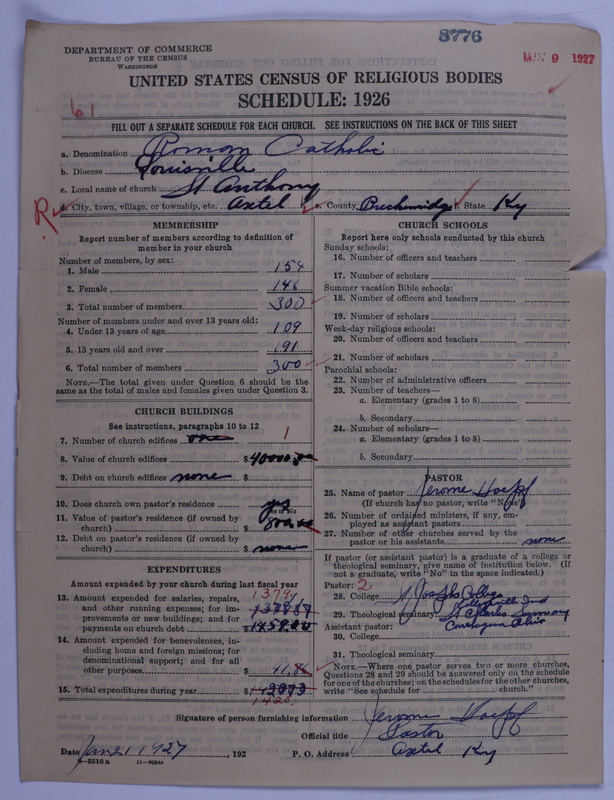 8776
DEPARTMENT OF COMMERCE
BUREAU OF THE CENSUS
WASHINGTON
9 1927
UNITED STATES CENSUS OF RELIGIOUS BODIES
SCHEDULE: 1926
61
FILL OUT A SEPARATE SCHEDULE FOR EACH CHURCH. SEE INSTRUCTIONS ON THE BACK OF THIS SHEET
a. Denomination Roman Catholic
b. Diocese Louisville
c. Local name of church St Anthony
R d. City, town, village, or township, etc. Axtel e. County Breckinridge State Ky
MEMBERSHIP
Report number of members according to definition of
member in your church
Number of members, by sex:
1. Male 154
2. Female 146
3. Total number of members 300
Number of members under and over 13 years old:
4. Under 13 years of age 109
5. 13 years old and over 191
6. Total number of members 300
NOTE.—The total given under Question 6 should be
same as the total of males and females given under Question 3.
CHURCH BUILDINGS
See instructions, paragraphs 10 to 12
7. Number of church edifices one 1
8. Value of church edifices $40000.00
9. Debt on church edifices none $
10. Does church own pastor's residence yes
Yes or No
11. Value of pastor's residence (if owned by
church) $ 800.00
12. Debt on pastor's residence (if owned by
church) $ none
EXPENDITURES
Amount expended by your church during last fiscal year
13. Amount expended for salaries, repairs,
1379
and other running expenses; for im-
provements or new buildings; and for
payments on church debt $
14. Amount expended for benevolences, in-
cluding home and foreign missions; for
denominational support; and for all
other purposes $ 41.86
15. Total expenditures during year $
1420
CHURCH SCHOOLS
Report here only schools conducted by this church
Sunday schools:
16. Number of officers and teachers
17. Number of scholars
Summer vacation Bible schools:
18. Number of officers and teachers
19. Number of scholars
Week-day religious schools:
20. Number of officers and teachers
21. Number of scholars
Parochial schools:
22. Number of administrative officers
23. Number of teachers—
a. Elementary (grades 1 to 8)
b. Secondary
24. Number of scholars—
a. Elementary (grades 1 to 8)
b. Secondary
PASTOR
25. Name of pastor Jerome
(If church has no pastor, write "None")
26. Number of ordained ministers, if any, em-
ployed as assistant pastors
27. Number of other churches served by the
pastor or his assistants none
If pastor (or assistant pastor) is a graduate of a college or
theological seminary, give name of institution below. (If
not a graduate, write "No" in the space indicated.)
Pastor: 2
28. College St Josephs College
Collegeville Ind
29. Theological seminary St Charles Seminary
Assistant pastor: Carthagena Ohio
30. College
31. Theological seminary
NOTE.—Where one pastor serves two or more churches,
Questions 28 and 29 should be answered only on the schedule
for one of the churches; on the schedules for the other churches,
write "See schedule for church."
Signature of person furnishing information Jerome
Official title Pastor
Date Jan 21 1927, 192 P. O. Address Axtel Ky
8—5518a 11—9034